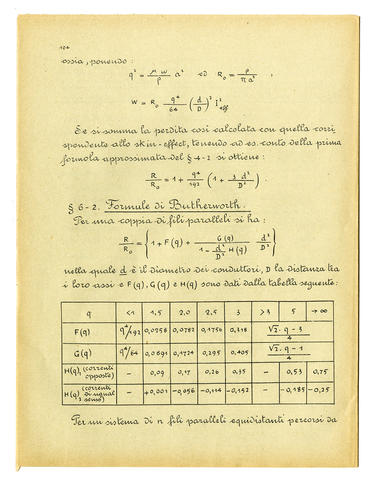 104
ossia, ponendo:
q² = μ w / ρ a² ed R₀ = ρ / π a² ,
W = R₀ q⁴/64 (d/D)² I²eff
E se si somma la perdita così calcolata con quella corri
spondente allo skin-effect, tenendo ad es. conto della prima
formola approssimata del § 4-2 si ottiene:
R/R₀ = 1 + q⁴/192 (1 + 3 d²/D²) .
§ 6-2. Formule di Butherworth.
Per una coppia di fili paralleli si ha:
R/R₀ = {1 + F(q) + G(q) / (1 - d²/D² H(q)) d²/D²}
nella quale d è il diametro dei conduttori, D la distanza tra
i loro assi e F(q), G(q) e H(q) sono dati dalla tabella seguente:
q <1 1,5 2,0 2,5 3 >3 5 →∞
F(q) q⁴/192 0,0258 0,0782 0,1756 0,318 (√2·q - 3)/4
G(q) q⁴/64 0,0691 0,1724 0,295 0,405 (√2·q - 1)/4
H(q)₁ (correnti opposte) – 0,09 0,17 0,26 0,35 – 0,53 0,75
H(q)₂ (correnti di ugual senso) – +0,001 -0,056 -0,114 -0,152 – -0,185 -0,25
Per un sistema di n fili paralleli equidistanti percorsi da